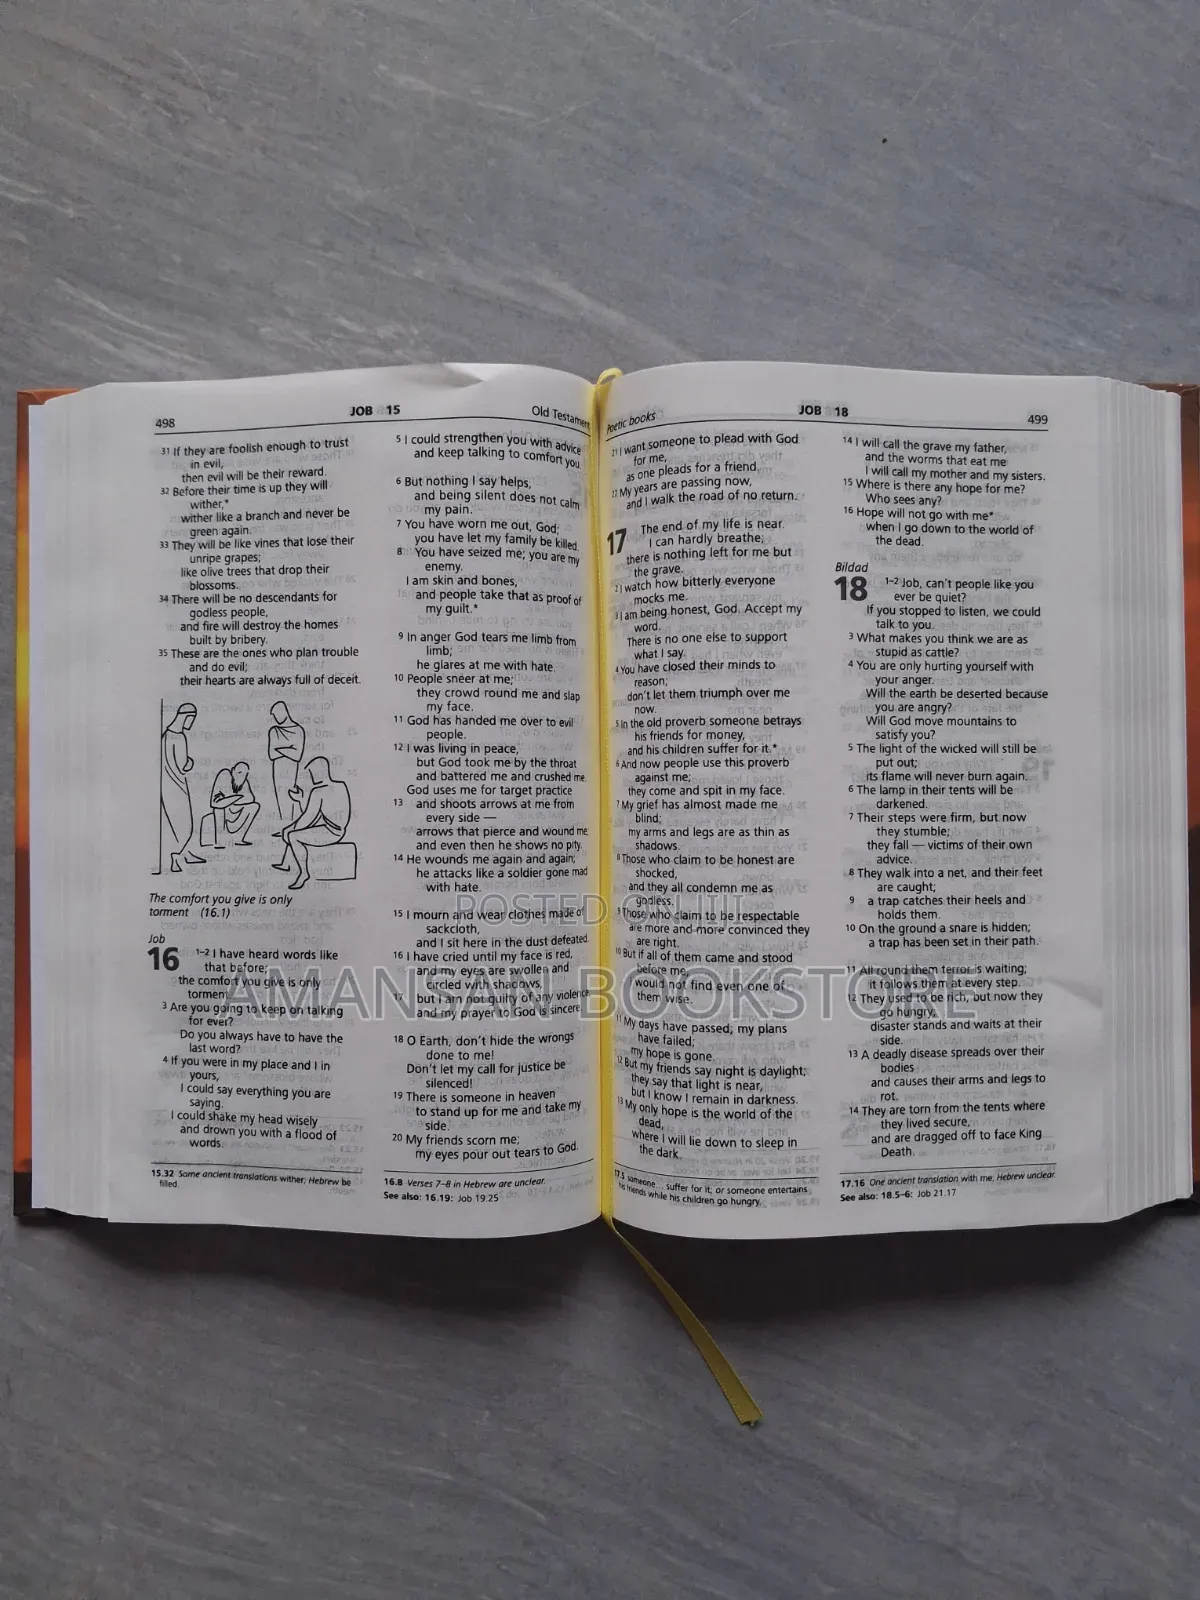 498
JOB 15
Old Testament
31 If they are foolish enough to trust
in evil,
then evil will be their reward.
32 Before their time is up they will
wither,*
wither like a branch and never be
green again.
33 They will be like vines that lose their
unripe grapes;
like olive trees that drop their
blossoms.
34 There will be no descendants for
godless people,
and fire will destroy the homes
built by bribery.
35 These are the ones who plan trouble
and do evil;
their hearts are always full of deceit.
The comfort you give is only
torment (16.1)
Job
16 1-2 I have heard words like
that before;
the comfort you give is only
torment.
3 Are you going to keep on talking
for ever?
Do you always have to have the
last word?
4 If you were in my place and I in
yours,
I could say everything you are
saying.
I could shake my head wisely
and drown you with a flood of
words.
15.32 Some ancient translations wither; Hebrew be
filled.
5 I could strengthen you with advice
and keep talking to comfort you.
6 But nothing I say helps,
and being silent does not calm
my pain.
7 You have worn me out, God;
you have let my family be killed.
8 You have seized me; you are my
enemy.
I am skin and bones,
and people take that as proof of
my guilt.*
9 In anger God tears me limb from
limb;
he glares at me with hate.
10 People sneer at me;
they crowd round me and slap
my face.
11 God has handed me over to evil
people.
12 I was living in peace,
but God took me by the throat
and battered me and crushed me.
God uses me for target practice
13 and shoots arrows at me from
every side —
arrows that pierce and wound me;
and even then he shows no pity.
14 He wounds me again and again;
he attacks like a soldier gone mad
with hate.
15 I mourn and wear clothes made of
sackcloth,
and I sit here in the dust defeated.
16 I have cried until my face is red,
and my eyes are swollen and
circled with shadows,
17 but I am not guilty of any violence,
and my prayer to God is sincere.
18 O Earth, don't hide the wrongs
done to me!
Don't let my call for justice be
silenced!
19 There is someone in heaven
to stand up for me and take my
side.
20 My friends scorn me;
my eyes pour out tears to God.
16.8 Verses 7–8 in Hebrew are unclear.
See also: 16.19: Job 19.25
Poetic books
JOB 18
499
21 I want someone to plead with God
for me,
as one pleads for a friend.
22 My years are passing now,
and I walk the road of no return.
17 The end of my life is near.
I can hardly breathe;
there is nothing left for me but
the grave.
2 I watch how bitterly everyone
mocks me.
3 I am being honest, God. Accept my
word.
There is no one else to support
what I say.
4 You have closed their minds to
reason;
don't let them triumph over me
now.
5 In the old proverb someone betrays
his friends for money,
and his children suffer for it.*
6 And now people use this proverb
against me;
they come and spit in my face.
7 My grief has almost made me
blind;
my arms and legs are as thin as
shadows.
8 Those who claim to be honest are
shocked,
and they all condemn me as
godless.
9 Those who claim to be respectable
are more and more convinced they
are right.
10 But if all of them came and stood
before me,
I would not find even one of
them wise.
11 My days have passed; my plans
have failed;
my hope is gone.
12 But my friends say night is daylight;
they say that light is near,
but I know I remain in darkness.
13 My only hope is the world of the
dead,
where I will lie down to sleep in
the dark.
17.5 someone ... suffer for it; or someone entertains
his friends while his children go hungry.
14 I will call the grave my father,
and the worms that eat me
I will call my mother and my sisters.
15 Where is there any hope for me?
Who sees any?
16 Hope will not go with me*
when I go down to the world of
the dead.
Bildad
18 1-2 Job, can't people like you
ever be quiet?
If you stopped to listen, we could
talk to you.
3 What makes you think we are as
stupid as cattle?
4 You are only hurting yourself with
your anger.
Will the earth be deserted because
you are angry?
Will God move mountains to
satisfy you?
5 The light of the wicked will still be
put out;
its flame will never burn again.
6 The lamp in their tents will be
darkened.
7 Their steps were firm, but now
they stumble;
they fall — victims of their own
advice.
8 They walk into a net, and their feet
are caught;
9 a trap catches their heels and
holds them.
10 On the ground a snare is hidden;
a trap has been set in their path.
11 All round them terror is waiting;
it follows them at every step.
12 They used to be rich, but now they
go hungry;
disaster stands and waits at their
side.
13 A deadly disease spreads over their
bodies
and causes their arms and legs to
rot.
14 They are torn from the tents where
they lived secure,
and are dragged off to face King
Death.
17.16 One ancient translation with me; Hebrew unclear.
See also: 18.5–6: Job 21.17
POSTED ON JIJI
AMANSAN BOOKSTORE